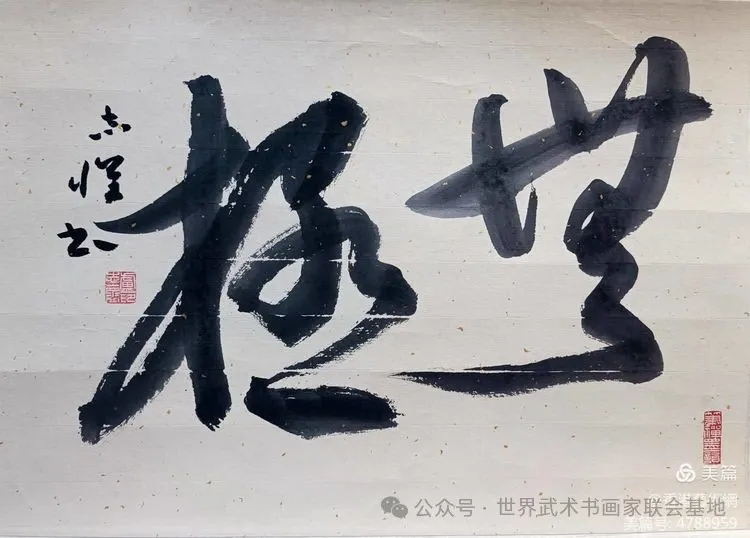 無極
志
书
美篇
公众号 · 世界武术书画家联会基地
美篇号: 4788959